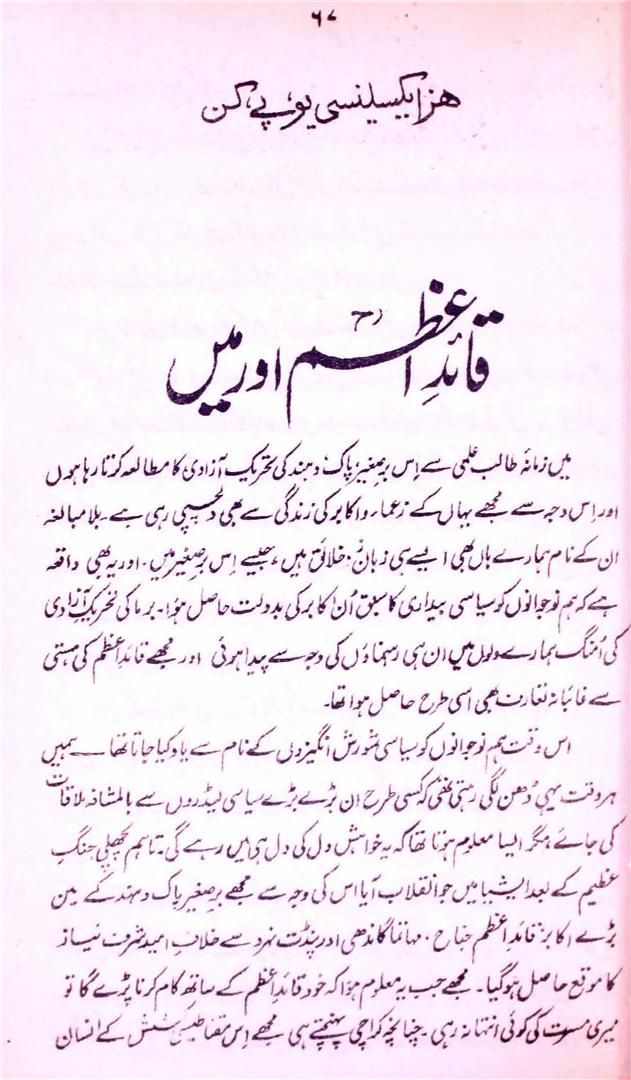 ۶۷
ہز ایکسیلنسی یو پے کن
قائدِ اعظم (رح) اور میں
میں زمانۂ طالب علمی سے اِس برِصغیر پاک و ہند کی تحریک آزادی کا مطالعہ کرتا رہا ہوں
اور اِس وجہ سے مجھے یہاں کے زعماء و اکابر کی زندگی سے بھی دلچسپی رہی ہے۔ بلا مبالغہ
ان کے نام ہمارے ہاں بھی ایسے ہی زبان زدِ خلائق ہیں، جیسے اِس برِصغیر میں۔ اور یہ بھی واقعہ
ہے کہ ہم نوجوانوں کو سیاسی بیداری کا سبق اُن اکابر کی بدولت حاصل ہوا۔ برما کی تحریک آزادی
کی اُمنگ ہمارے دلوں میں ان ہی رہنماؤں کی وجہ سے پیدا ہوئی اور مجھے قائدِ اعظم کی ہستی
سے غائبانہ تعارف بھی اسی طرح حاصل ہوا تھا۔
اس وقت ہم نوجوانوں کو سیاسی شورش انگیزوں کے نام سے یاد کیا جاتا تھا — ہمیں
ہر وقت یہی دُھن لگی رہتی تھی کہ کسی طرح ان بڑے بڑے سیاسی لیڈروں سے بالمشافہ ملاقات
کی جائے مگر ایسا معلوم ہوتا تھا کہ یہ خواہش دل کی دل ہی میں رہے گی۔ تاہم پچھلی جنگِ
عظیم کے بعد ایشیا میں جو انقلاب آیا اس کی وجہ سے مجھے برِصغیر پاک و ہند کے تین
بڑے اکابر قائدِ اعظم جناح، مہاتما گاندھی اور پنڈت نہرو سے خلافِ امید شرف نیاز
کا موقع حاصل ہو گیا۔ مجھے جب یہ معلوم ہوا کہ خود قائدِ اعظم کے ساتھ کام کرنا پڑے گا تو
میری مسرت کی کوئی انتہا نہ رہی۔ چنانچہ کراچی پہنچتے ہی مجھے اِس مقناطیسی کشش کے انسان